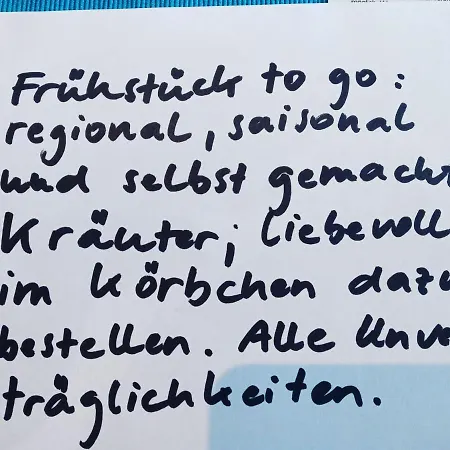 Frühstück to go:
regional, saisonal
und selbst gemacht
Kräuter; liebevoll
im Körbchen dazu
bestellen. Alle Unve
träglichkeiten.